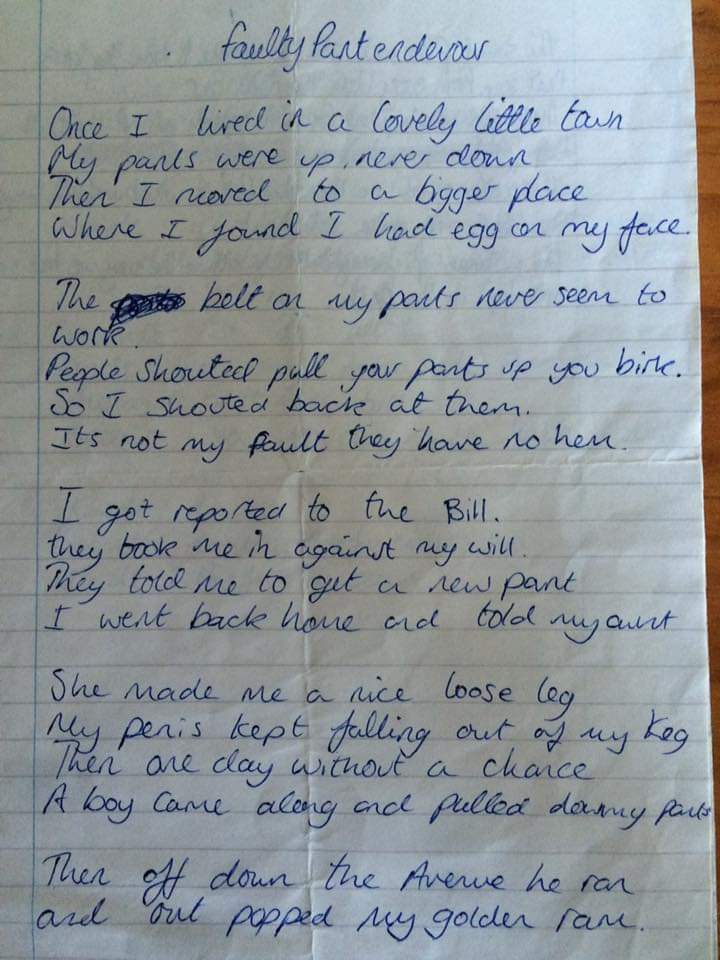 Faulty Pant endevour
Once I lived in a lovely little town
My pants were up, never down
Then I moved to a bigger place
Where I found I had egg on my face.
The belt on my pants never seem to
work.
People shouted pull your pants up you birk.
So I shouted back at them.
Its not my fault they have no hem.
I got reported to the Bill.
they took me in against my will.
They told me to get a new pant
I went back home and told my aunt
She made me a nice loose leg
My penis kept falling out of my keg
Then one day without a chance
A boy came along and pulled down my pants
Then off down the Avenue he ran
and out popped my golden ram.